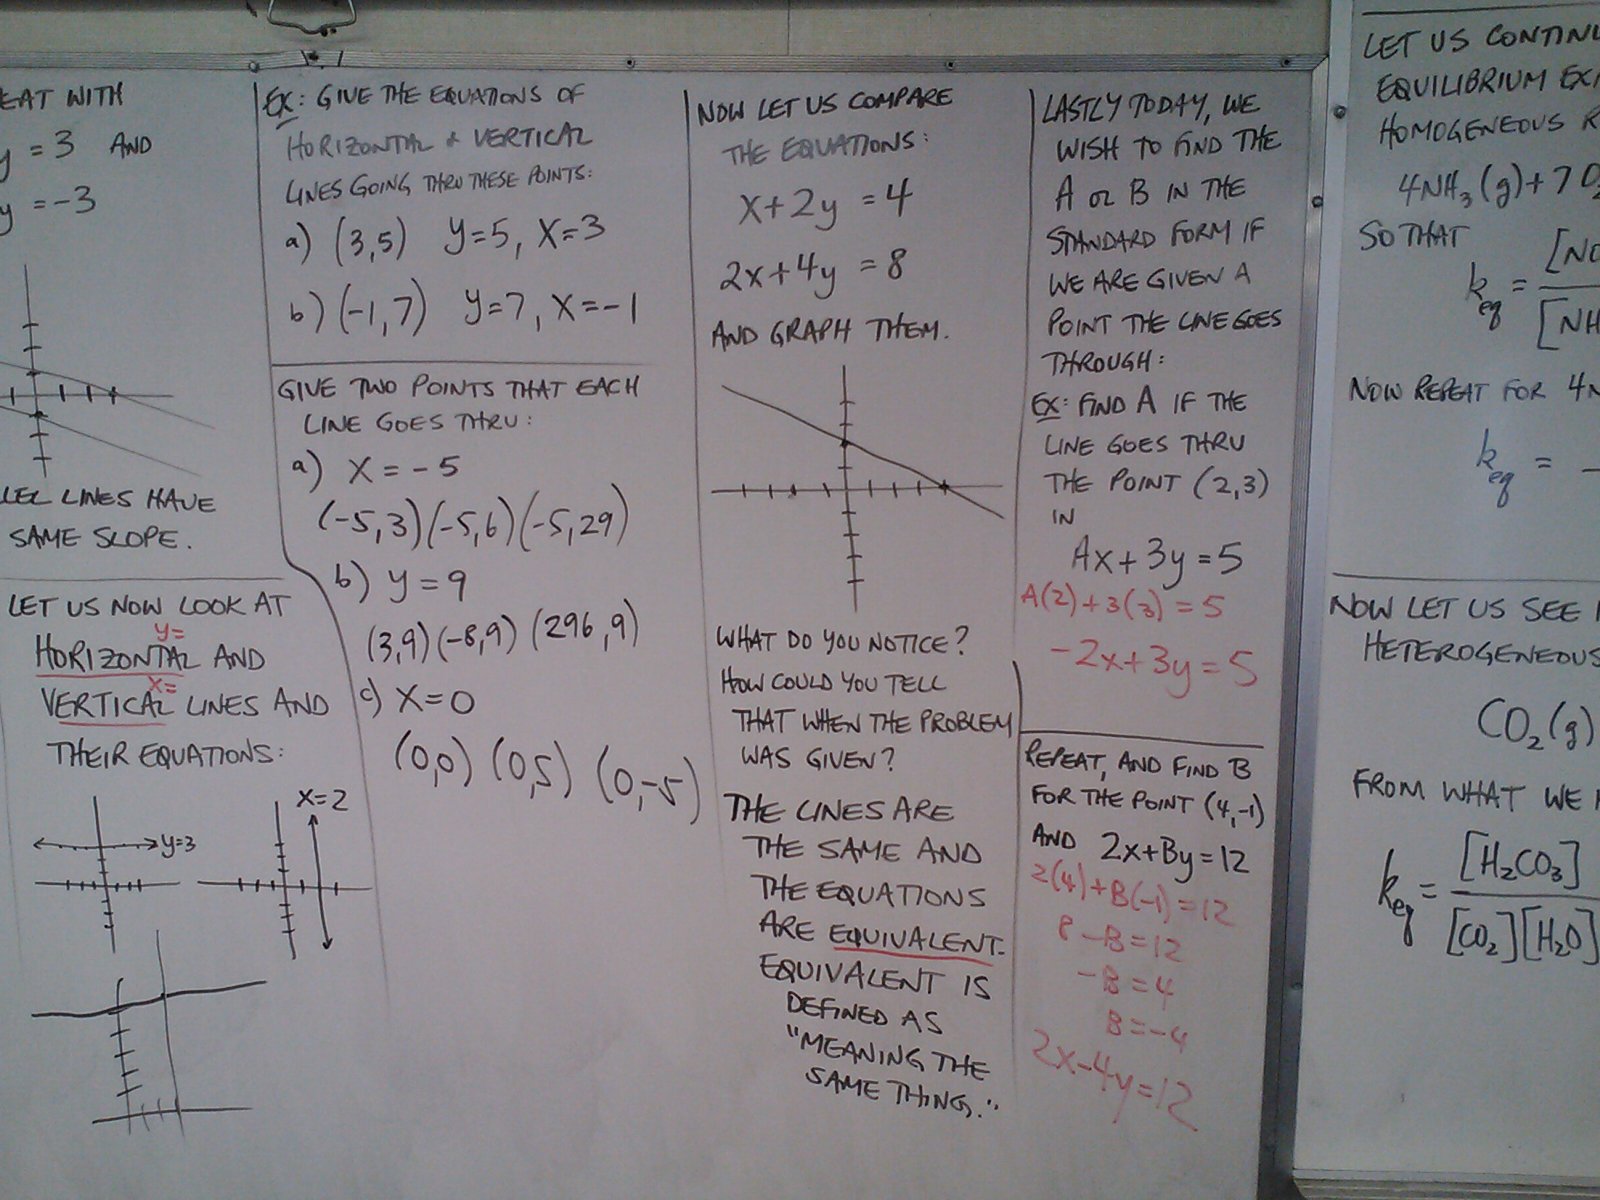 EAT WITH
y = 3 AND
y = -3
LEL LINES HAVE
SAME SLOPE.
LET US NOW LOOK AT
y=
HORIZONTAL AND
x=
VERTICAL LINES AND
THEIR EQUATIONS:
y=3
x=2
EX: GIVE THE EQUATIONS OF
HORIZONTAL & VERTICAL
LINES GOING THRU THESE POINTS:
a) (3,5) y=5, x=3
b) (-1,7) y=7, x=-1
GIVE TWO POINTS THAT EACH
LINE GOES THRU:
a) x = -5
(-5,3)(-5,6)(-5,29)
b) y=9
(3,9)(-8,9)(296,9)
c) x=0
(0,0) (0,5) (0,-5)
NOW LET US COMPARE
THE EQUATIONS:
x+2y = 4
2x+4y = 8
AND GRAPH THEM.
WHAT DO YOU NOTICE?
HOW COULD YOU TELL
THAT WHEN THE PROBLEM
WAS GIVEN?
THE LINES ARE
THE SAME AND
THE EQUATIONS
ARE EQUIVALENT.
EQUIVALENT IS
DEFINED AS
"MEANING THE
SAME THING."
LASTLY TODAY, WE
WISH TO FIND THE
A OR B IN THE
STANDARD FORM IF
WE ARE GIVEN A
POINT THE LINE GOES
THROUGH:
EX: FIND A IF THE
LINE GOES THRU
THE POINT (2,3)
IN
Ax+3y=5
A(2)+3(3)=5
-2x+3y=5
REPEAT, AND FIND B
FOR THE POINT (4,-1)
AND 2x+By=12
2(4)+B(-1)=12
8-B=12
-B=4
B=-4
2x-4y=12
LET US CONTINU
EQUILIBRIUM EX
HOMOGENEOUS R
4NH₃(g)+7O₂
SO THAT
keq = [NO
[NH
NOW REPEAT FOR 4N
keq =
NOW LET US SEE
HETEROGENEOUS
CO₂(g)
FROM WHAT WE
keq = [H₂CO₃]
[CO₂][H₂O]